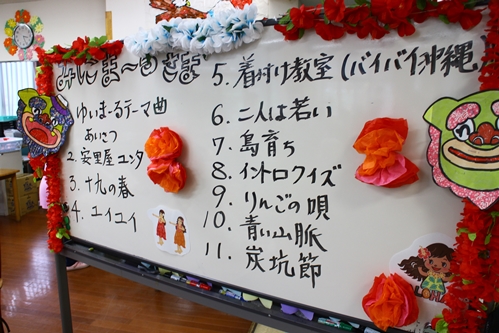 ゆいまーるテーマ曲
あいさつ
2. 安里屋ユンタ
3. 十九の春
4. エイエイ
5. 着付け教室(バイバイ沖縄)
6. 二人は若い
7. 島育ち
8. イントロクイズ
9. りんごの唄
10. 青い山脈
11. 炭坑節